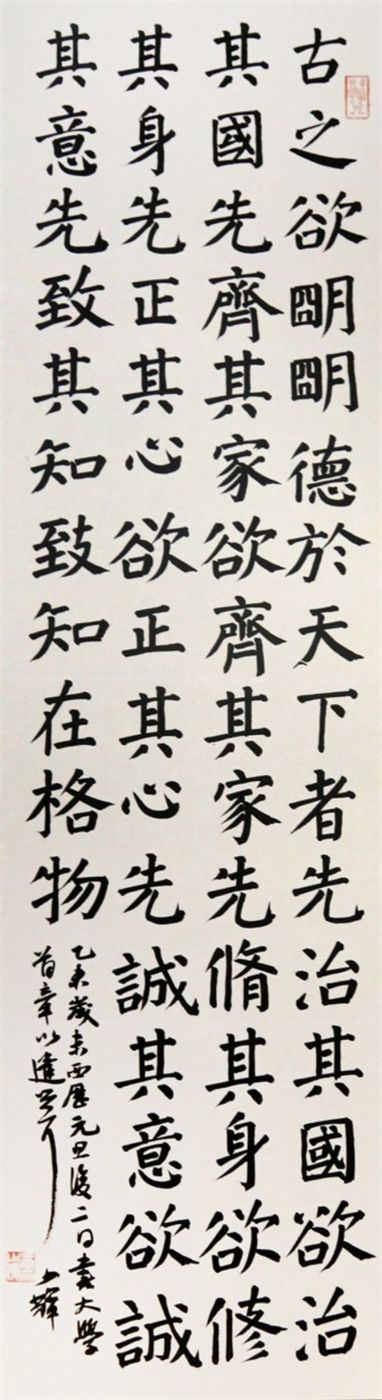 古之欲朙朙德於天下者先治其國欲治
其國先齊其家欲齊其家先脩其身欲修
其身先正其心欲正其心先誠其意欲誠
其意先致其知致知在格物
乙未歲末西曆元旦後二日書大學
首章以遣興耳